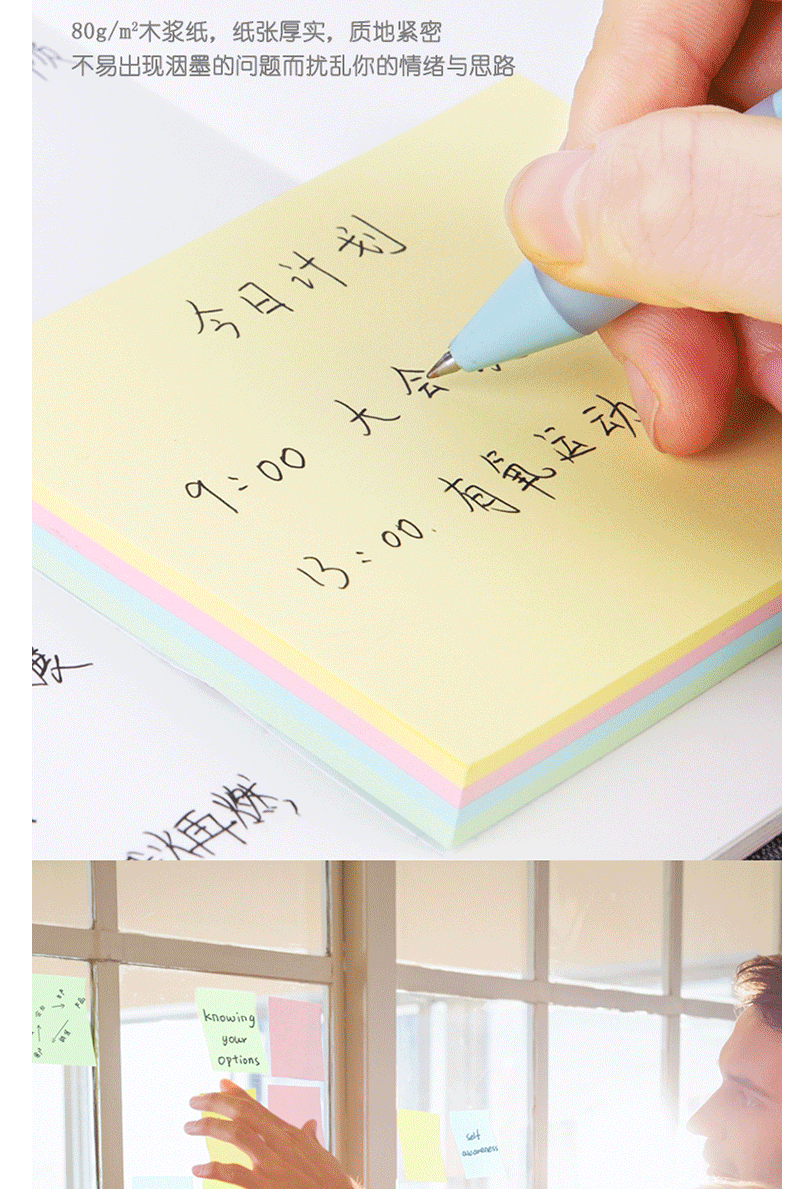 80g/m²木浆纸，纸张厚实，质地紧密
不易出现洇墨的问题而扰乱你的情绪与思路
今日计划
9:00 大会
13:00. 有氧运动
再燃，
knowing
your
options
self
awareness